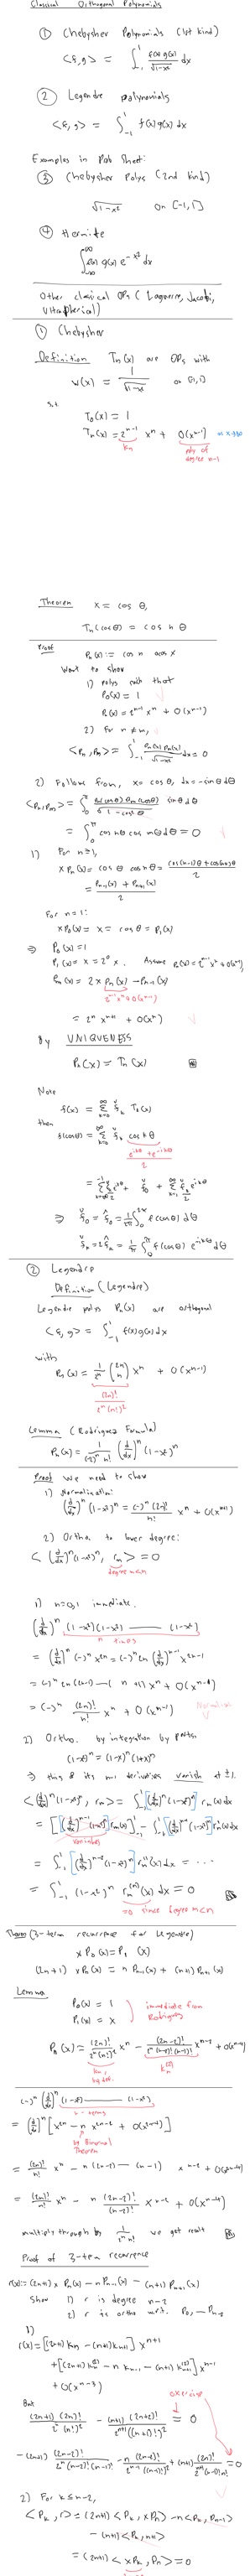 Classical Orthogonal Polynomials
① Chebyshev Polynomials (1st kind)
<f,g> = ∫_{-1}^{1} f(x)g(x)/√(1-x²) dx
② Legendre polynomials
<f,g> = ∫_{-1}^{1} f(x)g(x) dx
Examples in Prob Sheet:
③ Chebyshev Polys (2nd kind)
√(1-x²) on [-1,1]
④ Hermite
∫_{-∞}^{∞} f(x) g(x) e^{-x²} dx
Other classical OPs (Laguerre, Jacobi,
Ultraspherical)
① Chebyshev
Definition Tₙ(x) are OPs with
w(x) = 1/√(1-x²) on [-1,1]
s.t.
T₀(x) = 1
Tₙ(x) = 2^{n-1} xⁿ + O(x^{n-1}) as x→∞
kₙ
poly of
degree n-1
Theorem x = cos θ,
Tₙ(cos θ) = cos n θ
Proof Pₙ(x) := cos n acos x
Want to show
1) polys such that
P₀(x) = 1
Pₙ(x) = 2^{n-1} xⁿ + O(x^{n-1})
2) For n≠m,
<Pₙ, Pₘ> = ∫_{-1}^{1} Pₙ(x) Pₘ(x)/√(1-x²) dx = 0
2) Follows from, x = cos θ, dx = -sin θ dθ
= ∫_0^π cos nθ cos mθ dθ = 0
1) For n≥1,
x Pₙ(x) = cos θ cos nθ = (cos(n-1)θ + cos(n+1)θ)/2
= (Pₙ₋₁(x) + Pₙ₊₁(x))/2
For n=1:
x P₀(x) = x = cos θ = P₁(x)
⇒ P₀(x) = 1
P₁(x) = x = 2⁰ x. Assume Pₙ(x) = 2^{n-1} xⁿ + O(x^{n-1})
Pₙ₊₁(x) = 2x Pₙ(x) - Pₙ₋₁(x)
2^{n-1} xⁿ + O(x^{n-1})
= 2ⁿ x^{n+1} + O(xⁿ)
By UNIQUENESS
Pₙ(x) = Tₙ(x)
Note
f(x) = Σ_{k=0}^∞ f̌ₖ Tₖ(x)
then
f(cos θ) = Σ_{k=0}^∞ f̌ₖ cos k θ
(e^{ikθ} + e^{-ikθ})/2
⇒ f̌₀ = f̂₀ = 1/2π ∫_0^{2π} f(cos θ) dθ
f̌ₖ = 2f̂ₖ = 1/π ∫_0^{2π} f(cos θ) e^{-ikθ} dθ
② Legendre
Definition (Legendre)
Legendre polys Pₙ(x) are orthogonal
<f,g> = ∫_{-1}^{1} f(x)g(x) dx
with
Pₙ(x) = 1/2ⁿ (2n n) xⁿ + O(x^{n-1})
(2n)!/(2ⁿ (n!)²)
Lemma (Rodriguez Formula)
Pₙ(x) = 1/((-2)ⁿ n!) (d/dx)ⁿ (1-x²)ⁿ
Proof We need to show
1) Normalisation:
2) Ortho. to lower degree:
<(d/dx)ⁿ (1-x²)ⁿ, rₘ> = 0
degree m<n
1) n=0,1 immediate.
(d/dx)ⁿ (1-x²)(1-x²) — (1-x²)
n times
= (d/dx)ⁿ (-)ⁿ x^{2n} = (-)ⁿ 2n (d/dx)^{n-1} x^{2n-1}
= (-)ⁿ 2n (2n-1) — (n+1) xⁿ + O(x^{n-1})
= (-)ⁿ (2n)!/n! xⁿ + O(x^{n-1})
2) Ortho. by integration by parts
(1-x²)ⁿ = (1-x)ⁿ (1+x)ⁿ
⇒ this & its n-1 derivatives vanish at ±1.
<(d/dx)ⁿ (1-x²)ⁿ, rₘ> = ∫_{-1}^{1} (d/dx)ⁿ (1-x²)ⁿ rₘ(x) dx
vanishes
= ∫_{-1}^{1} (d/dx)^{n-2} (1-x²)ⁿ rₘ''(x) dx = ···
= ∫_{-1}^{1} (1-x²)ⁿ rₘ^{(n)}(x) dx = 0
=0 since degree m<n
Thm (3-term recurrence for Legendre)
x P₀(x) = P₁(x)
(2n+1) x Pₙ(x) = n Pₙ₋₁(x) + (n+1) Pₙ₊₁(x)
Lemma
P₀(x) = 1
P₁(x) = x
immediate from
Rodriguez
Pₙ(x) = (2n)!/(2ⁿ (n!)²) xⁿ - (2n-2)!/(2ⁿ (n-2)! (n-1)!) x^{n-2} + O(x^{n-4})
(-)ⁿ (d/dx)ⁿ (1-x²) — (1-x²)
n-terms
= (d/dx)ⁿ [x^{2n} - n x^{2n-2} + O(x^{2n-4})]
by Binomial
Theorem
= (2n)!/n! xⁿ - n (2n-2) — (n-1) x^{n-2} + O(x^{n-4})
= (2n)!/n! xⁿ - n (2n-2)!/(n-2)! x^{n-2} + O(x^{n-4})
multiply through by 1/(2ⁿ n!) we get result
Proof of 3-term recurrence
r(x) := (2n+1) x Pₙ(x) - n Pₙ₋₁(x) - (n+1) Pₙ₊₁(x)
Show 1) r is degree n-2
2) r is ortho w.r.t. P₀, — Pₙ₋₂
1)
r(x) = [(2n+1) kₙ - (n+1) kₙ₊₁] x^{n+1}
+ [(2n+1) kₙ^{(2)} - n kₙ₋₁ - (n+1) kₙ₊₁^{(2)}] x^{n-1}
+ O(x^{n-3})
exercise
But
(2n+1) (2n)!/(2ⁿ (n!)²) - (n+1) (2n+2)!/(2^{n+1} ((n+1)!)²) = 0
2) For k ≤ n-2,
<Pₖ, r> = (2n+1) <Pₖ, x Pₙ> - n <Pₖ, Pₙ₋₁>
- (n+1) <Pₖ, Pₙ₊₁>
= (2n+1) <x Pₖ, Pₙ> = 0